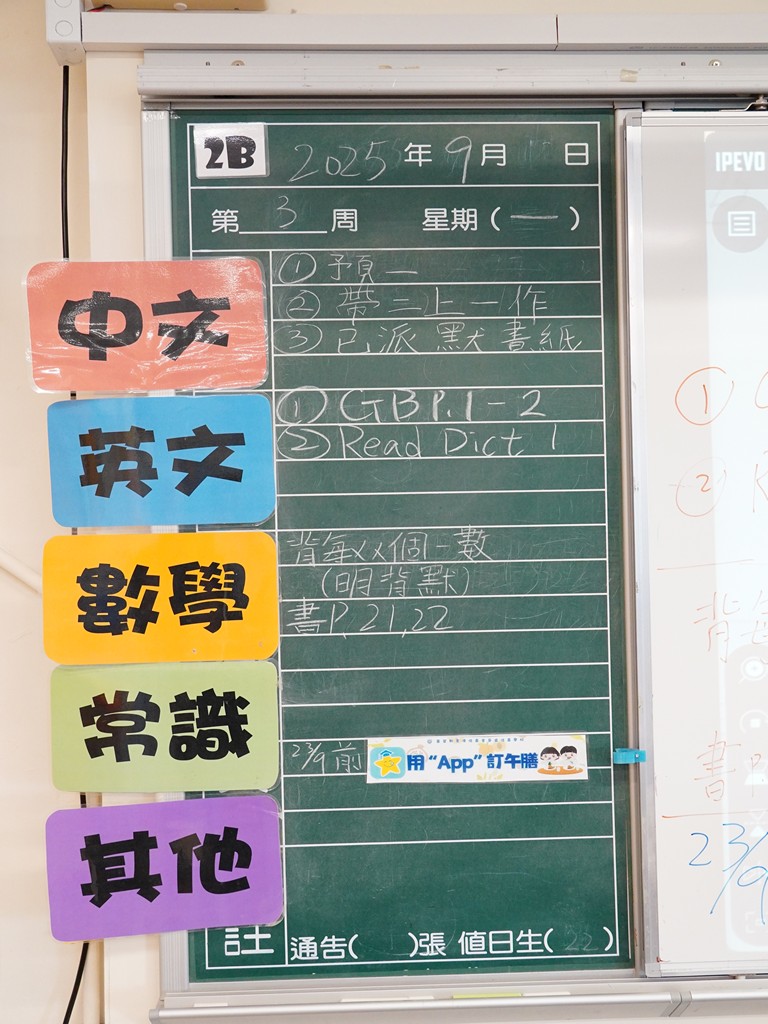 2B 2025年9月 日
第3周 星期(一)
中文
①預一
②帶二上一作
③已派 默書紙
英文
①GB P.1-2
②Read Dict 1
數學
背每××個一數
(明背默)
書P.21,22
常識
23/9前
用“App”訂午膳
其他
註 通告( )張 值日生(22)
IPEVO
①
②
背每
書
23/9